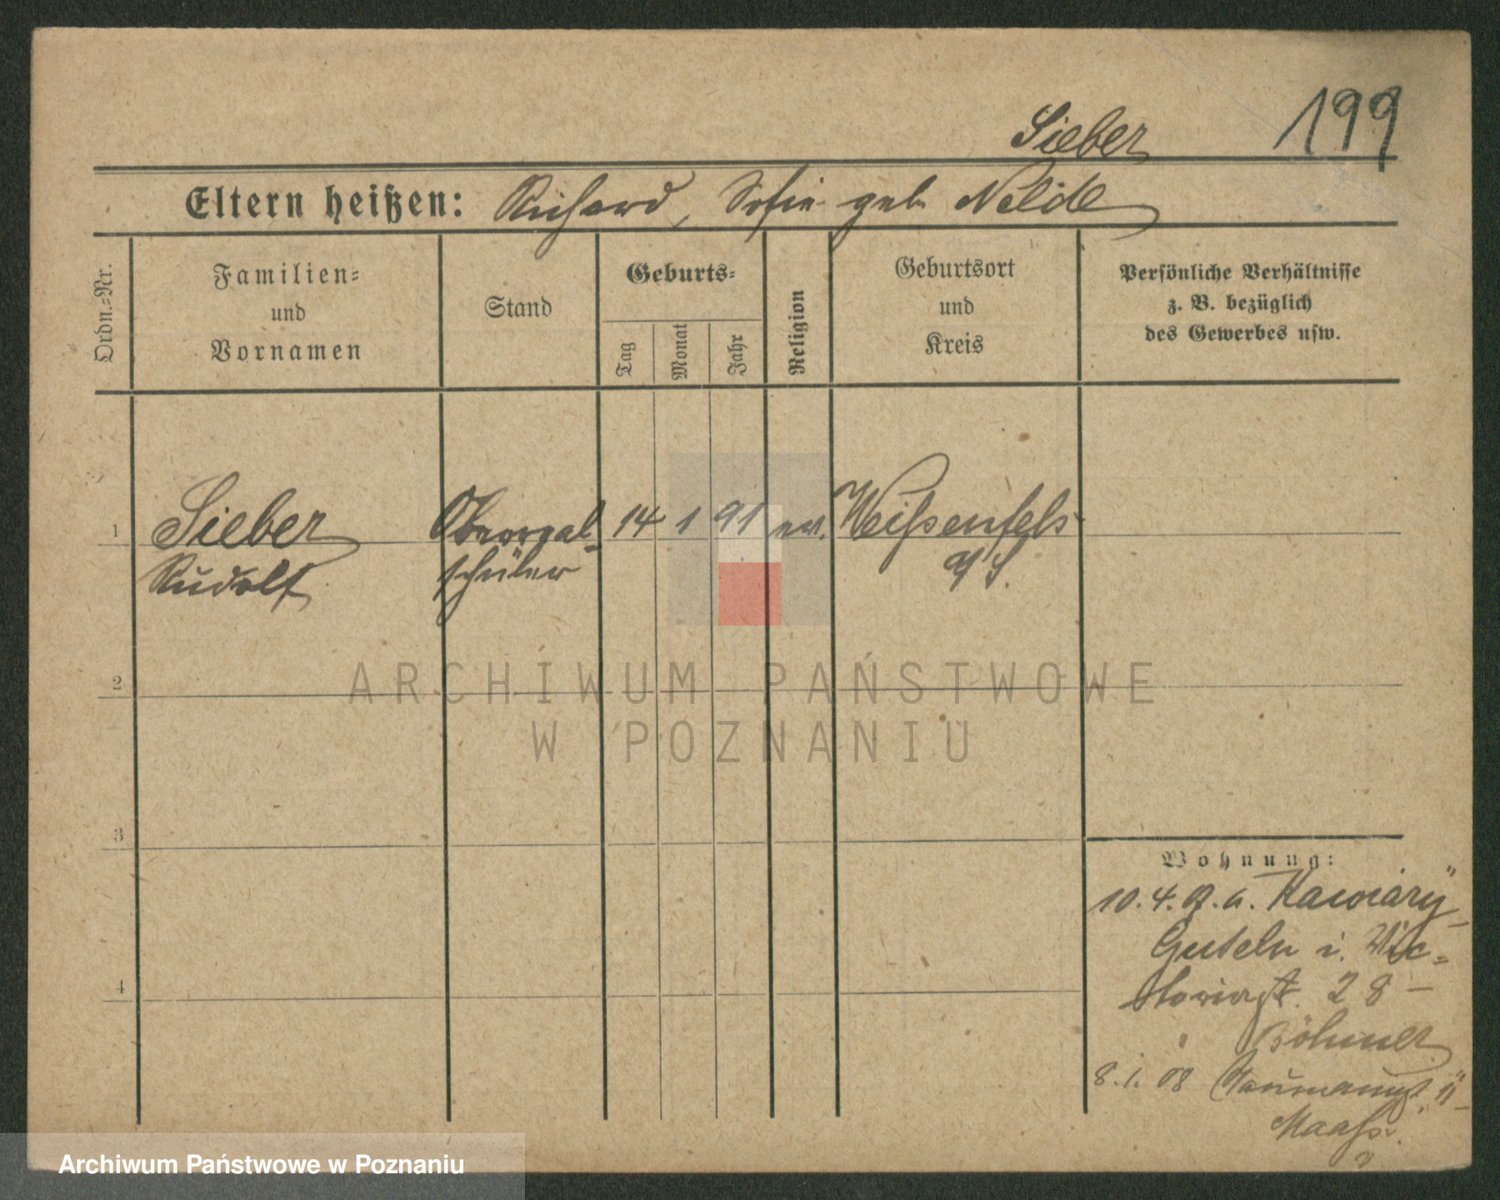 Sieber
199
Eltern heißen: Richard, Sofie geb. Nelde
Ordn.-Nr.
Familien-
und
Vornamen
Stand
Geburts-
Tag
Monat
Jahr
Religion
Geburtsort
und
Kreis
Persönliche Verhältnisse
z. B. bezüglich
des Gewerbes usw.
1
Sieber
Rudolf
Oberreal-
schüler
14
1
91
ev.
Weißenfels
a/S.
2
ARCHIWUM PAŃSTWOWE
W POZNANIU
3
4
Wohnung:
10.4. a. Kawiary
i. Vic-
toriastr. 28
Böhmer
8.1.08 Naumannstr. 11
Maaß
Archiwum Państwowe w Poznaniu